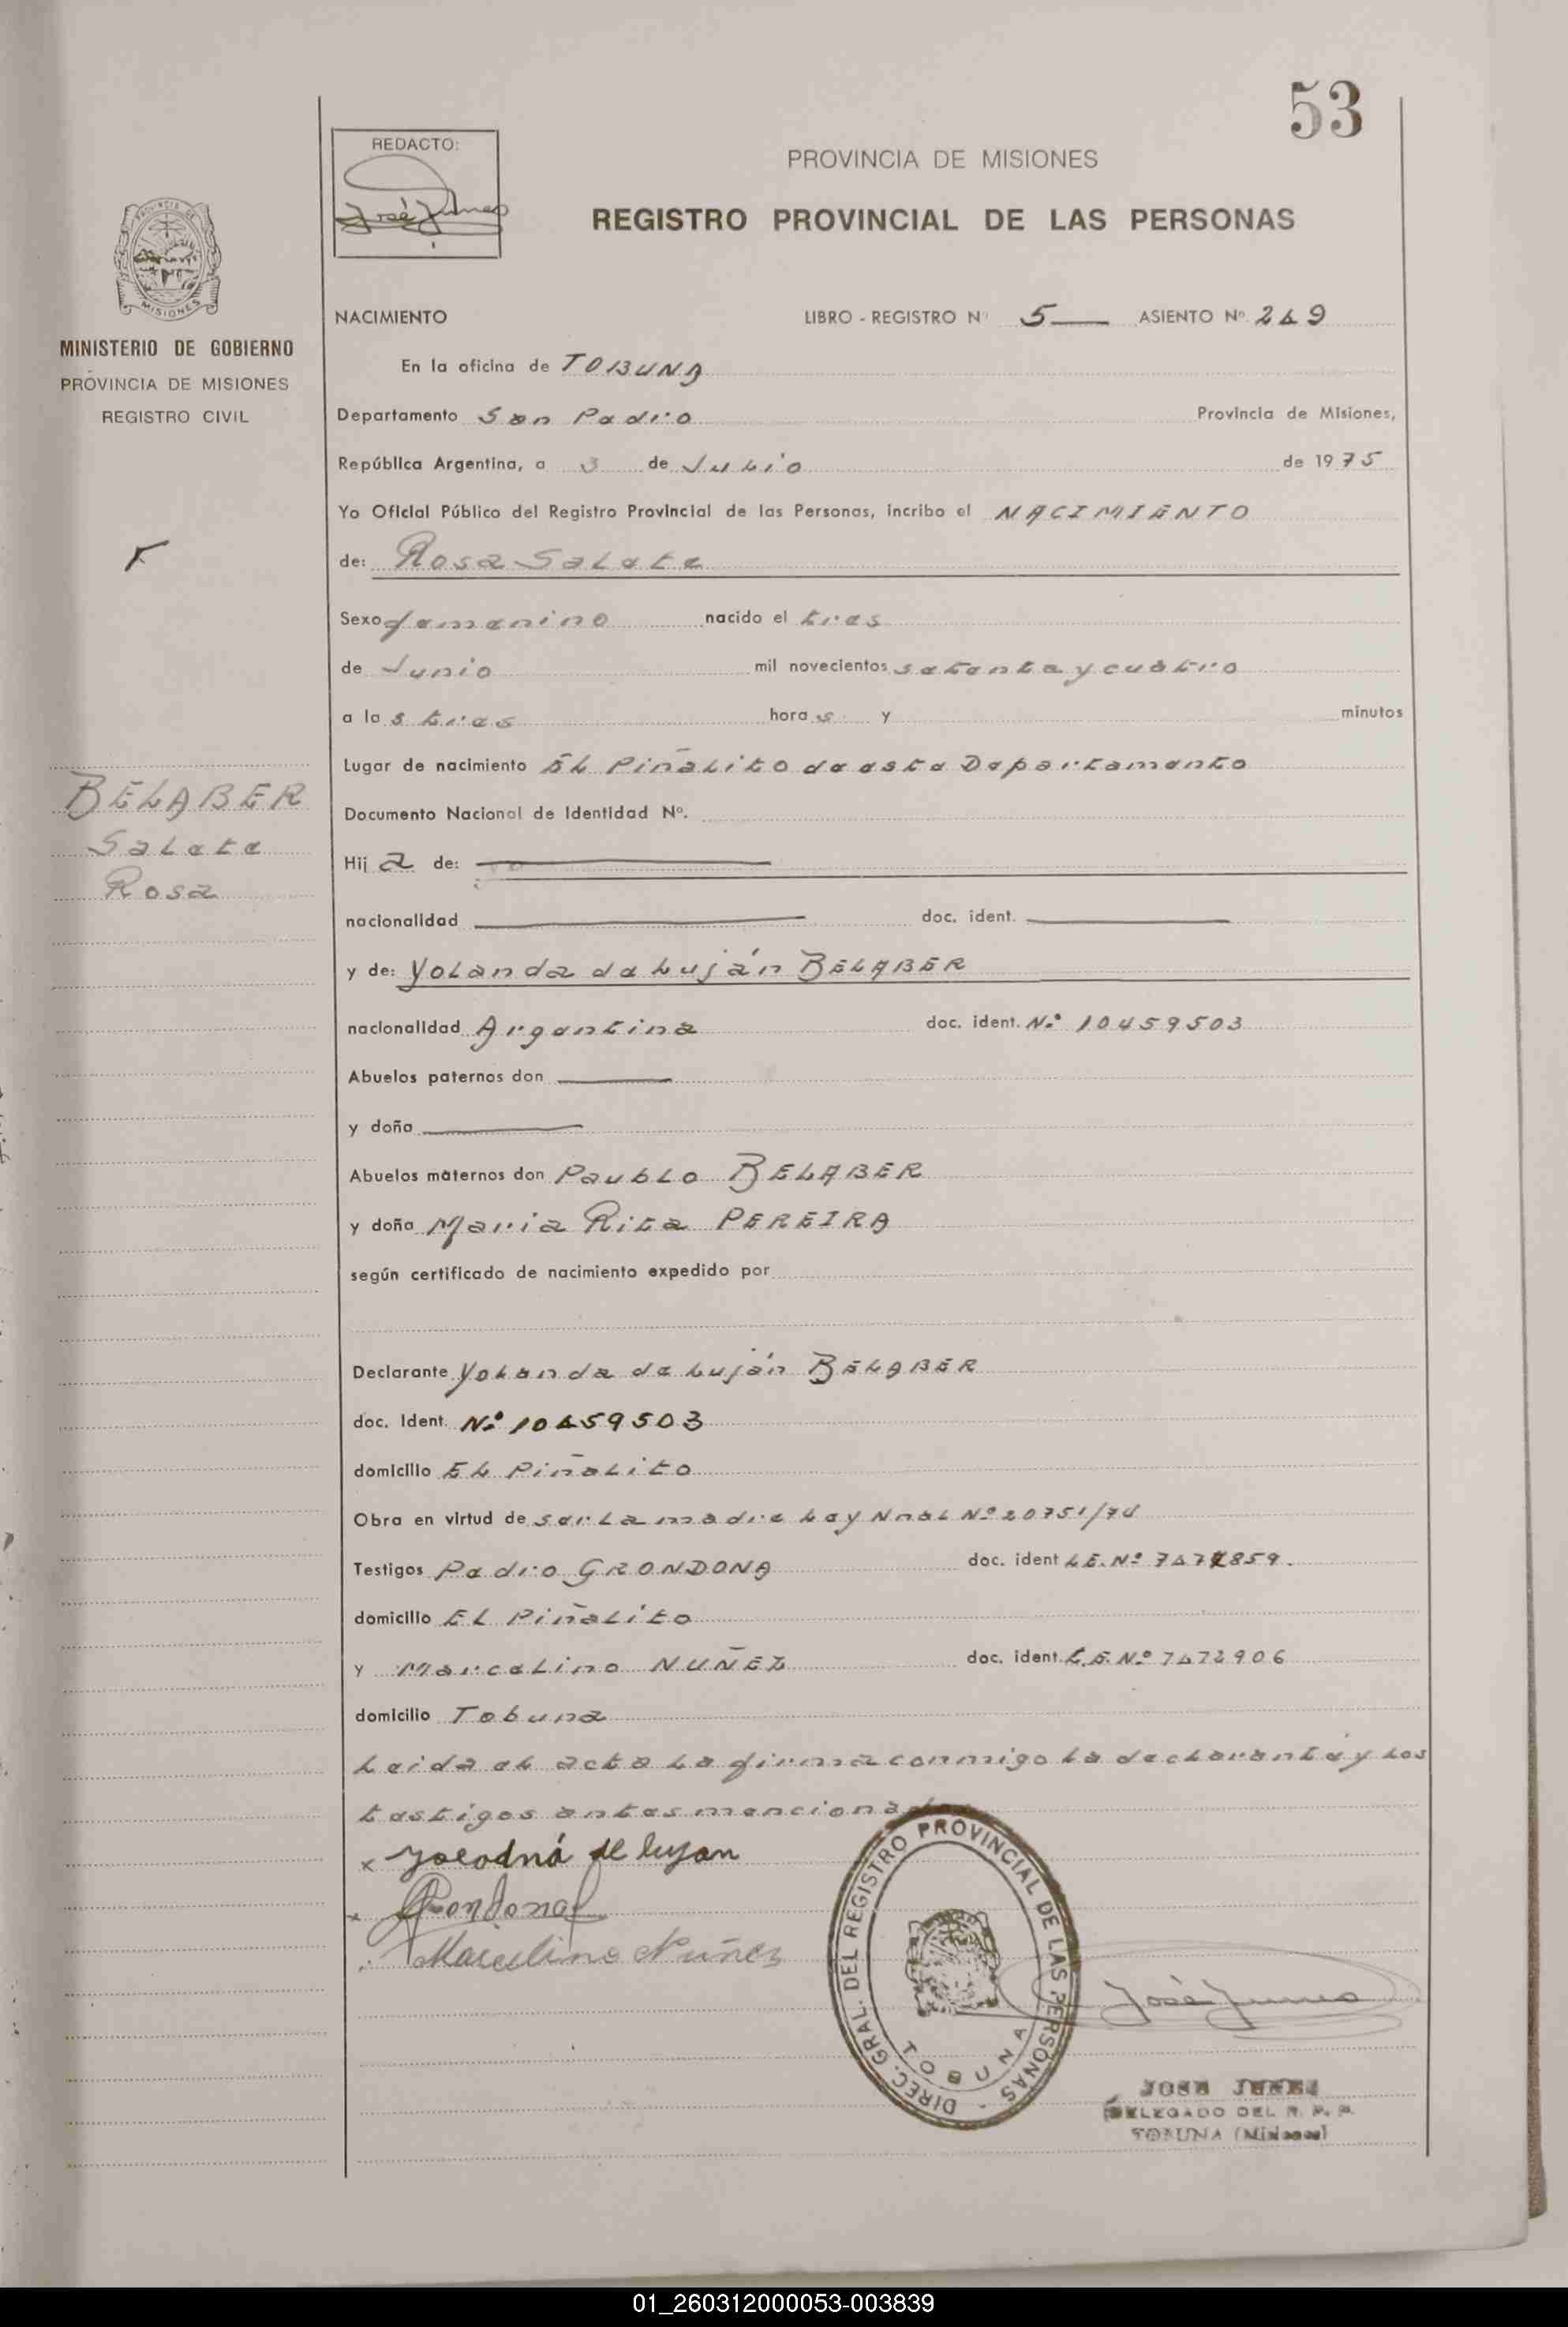 53
REDACTO:
PROVINCIA DE MISIONES
REGISTRO PROVINCIAL DE LAS PERSONAS
PROVINCIA DE
MISIONES
MINISTERIO DE GOBIERNO
PROVINCIA DE MISIONES
REGISTRO CIVIL
NACIMIENTO LIBRO - REGISTRO Nº 5 ASIENTO Nº 249
En la oficina de TOBUNA
Departamento San Pedro Provincia de Misiones,
República Argentina, a 3 de Julio de 1975
Yo Oficial Público del Registro Provincial de las Personas, incribo el NACIMIENTO
de: Rosa Salete
Sexo femenino nacido el tres
de Junio mil novecientos setenta y cuatro
a las tres horas y minutos
Lugar de nacimiento El Piñalito de este Departamento
BELABER
Salete
Rosa
Documento Nacional de Identidad Nº.
Hija de:
nacionalidad doc. ident.
y de: Yolanda de Luján BELABER
nacionalidad Argentina doc. ident. Nº 10459503
Abuelos paternos don
y doña
Abuelos maternos don Paublo BELABER
y doña Maria Rita PEREIRA
según certificado de nacimiento expedido por
Declarante Yolanda de Luján BELABER
doc. Ident. Nº 10459503
domicilio El Piñalito
Obra en virtud de ser la madre Ley Nnal Nº 20751/74
Testigos Pedro GRONDONA doc. ident L.E. Nº
domicilio El Piñalito
y Marcelino NUÑEZ doc. ident. L.E. Nº 7472906
domicilio Tobuna
Leida el acta la firma conmigo la declarante y los
testigos antes mencionados
x Yolodná de lujan
x Grondona
Marcelino Nuñez
DIREC. GRAL. DEL REGISTRO PROVINCIAL DE LAS PERSONAS -
TOBUNA
DELEGADO DEL R. P. P.
TOBUNA (Misiones)
01_260312000053-003839